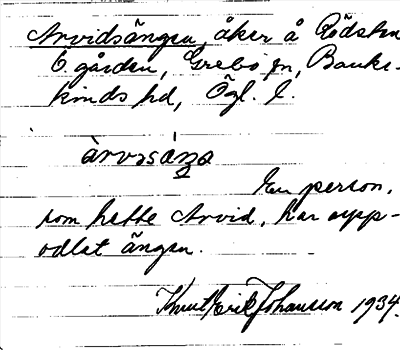 Arvidsängen, åker å Rödsten
Ö gården, Grebo sn, Banke-
kinds hd, Ögl. l.
àrvɪsáŋa
En person,
som hette Arvid, har upp-
odlat ängen.
Knut Erik Johansson 1934.